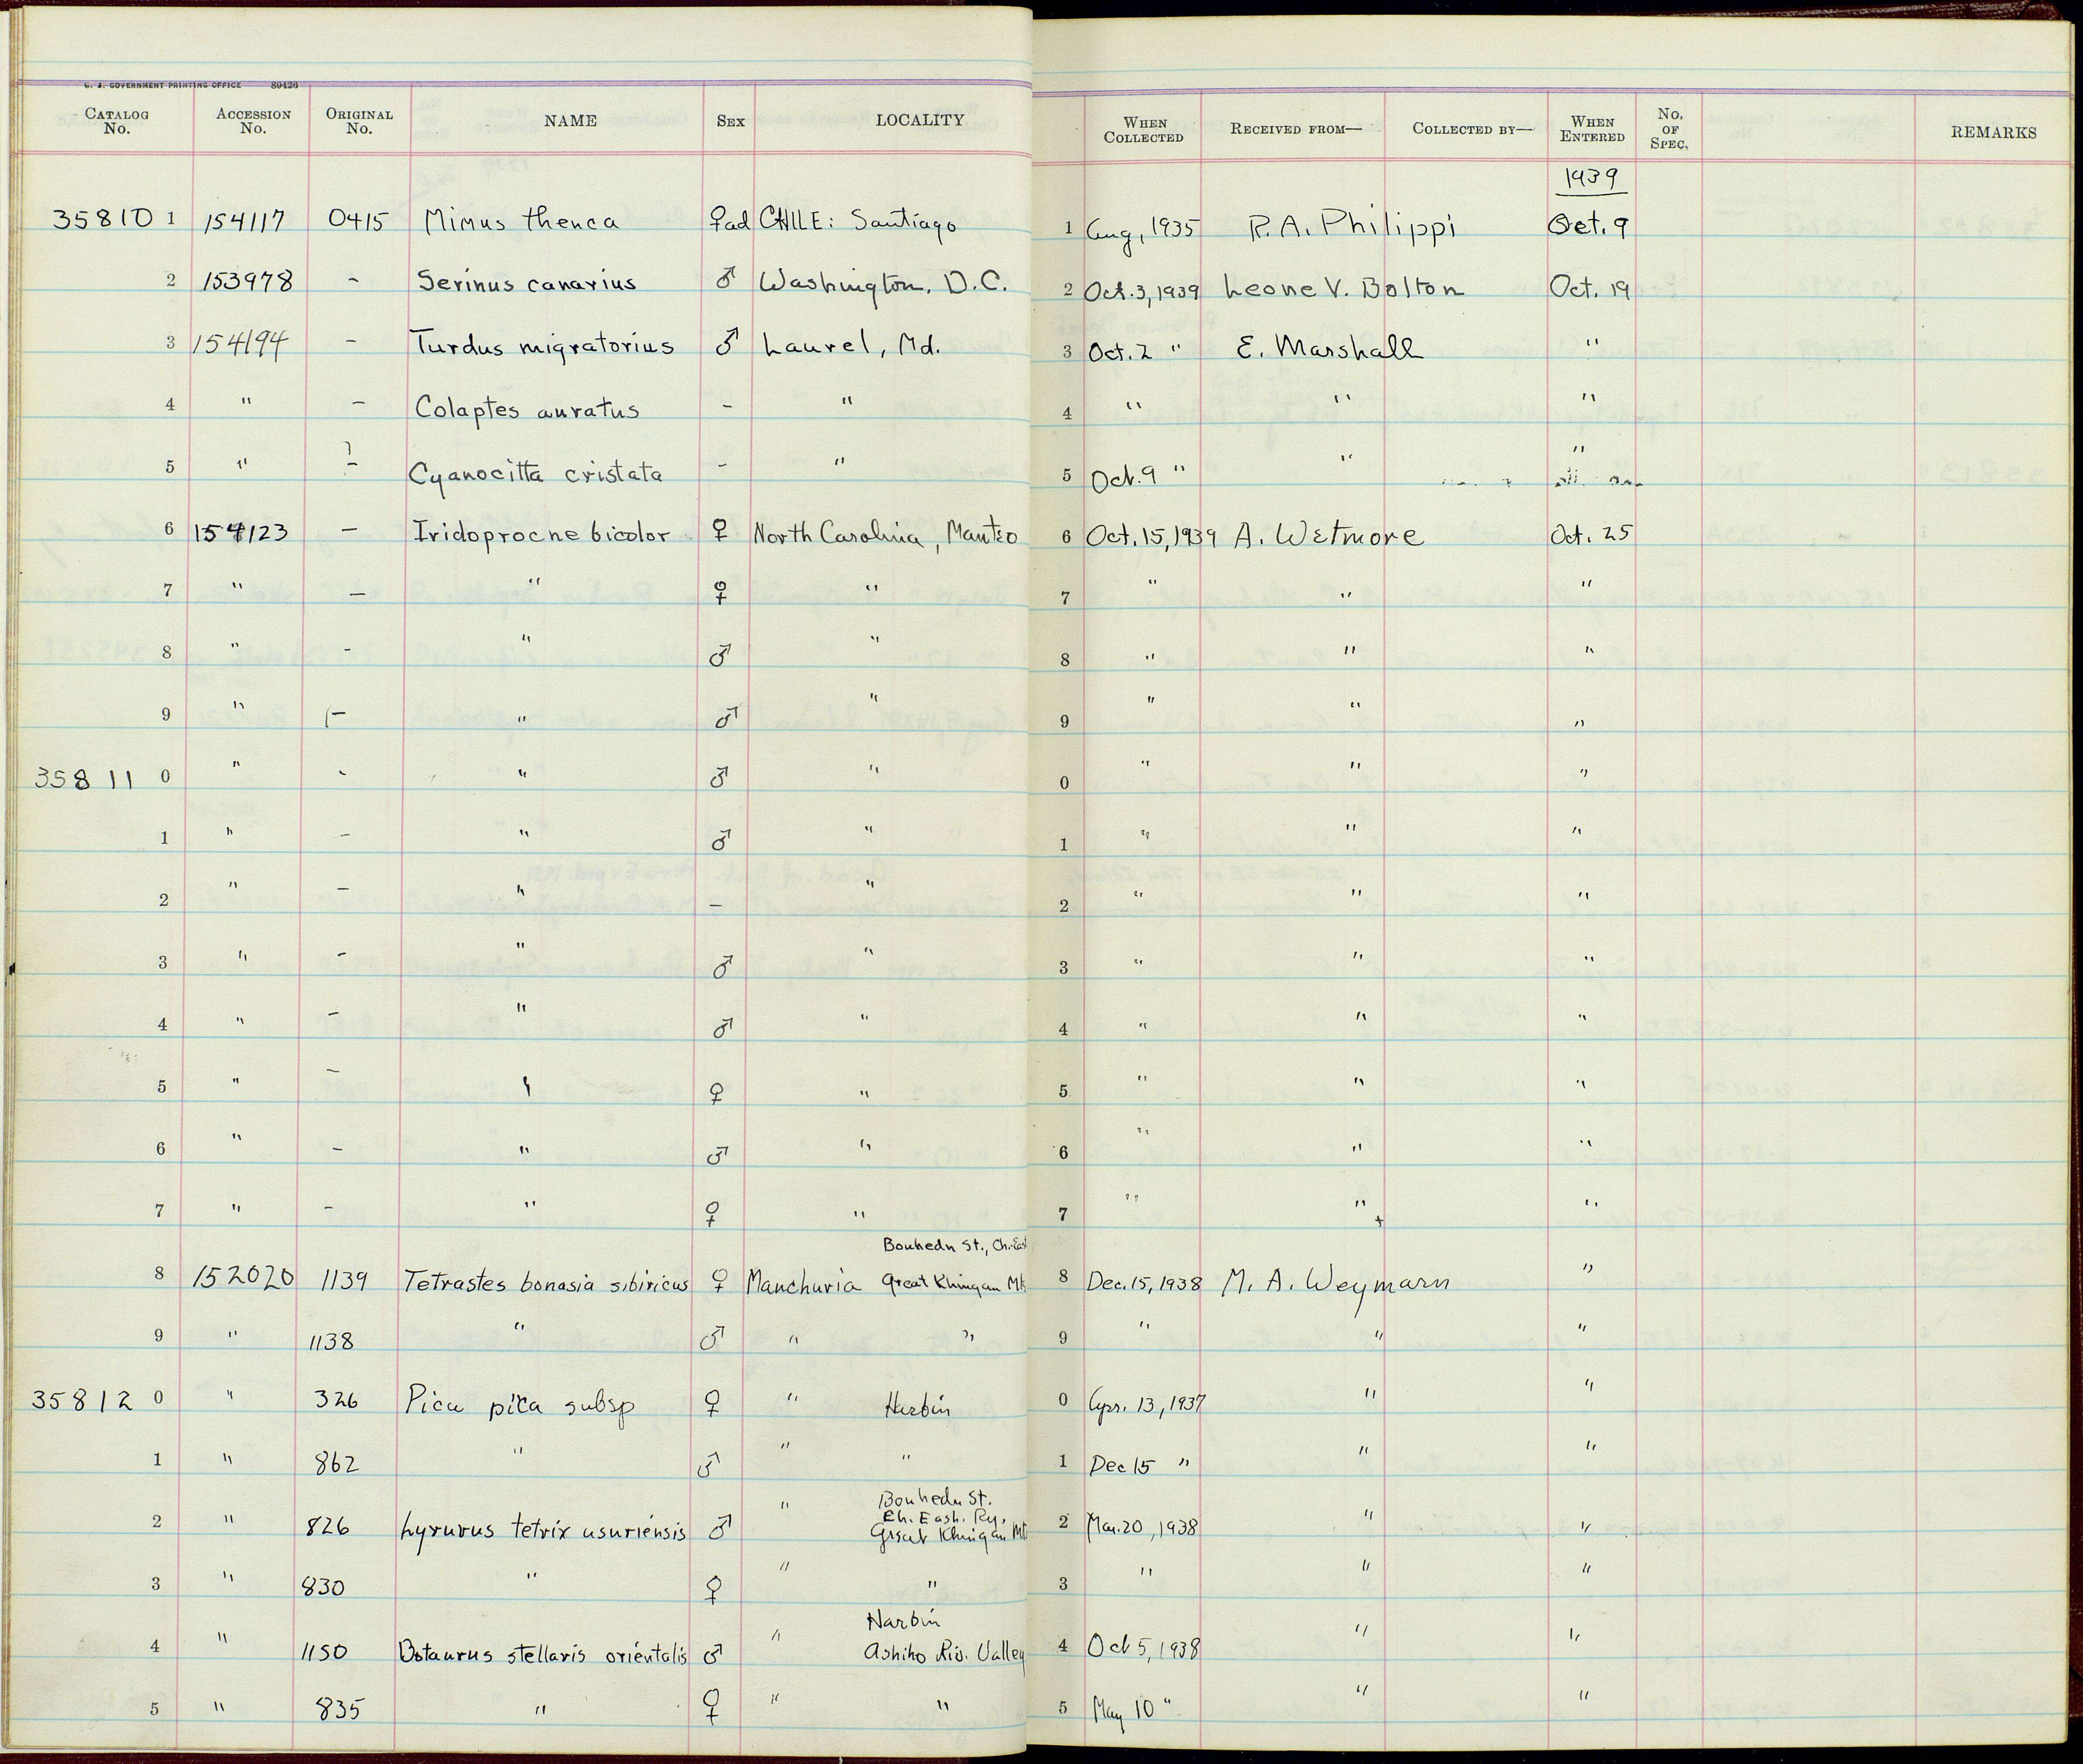 U. S. GOVERNMENT PRINTING OFFICE 89426
CATALOG No. ACCESSION No. ORIGINAL No. NAME SEX LOCALITY WHEN COLLECTED RECEIVED FROM— COLLECTED BY— WHEN ENTERED No. OF SPEC. REMARKS
1939
35810 1 154117 0415 Mimus thenca ♀ad CHILE: Santiago 1 Aug, 1935 R. A. Philippi Oct. 9
2 153978 - Serinus canarius ♂ Washington, D.C. 2 Oct. 3, 1939 Leone V. Bolton Oct. 19
3 154194 - Turdus migratorius ♂ Laurel, Md. 3 Oct. 2 " E. Marshall "
4 " - Colaptes auratus - " 4 " " "
5 " - Cyanocitta cristata - " 5 Oct. 9 " " "
6 154123 - Iridoprocne bicolor ♀ North Carolina, Manteo 6 Oct. 15, 1939 A. Wetmore Oct. 25
7 " - " ♀ " 7 " " "
8 " - " ♂ " 8 " " "
9 " - " ♂ " 9 " " "
35811 0 " - " ♂ " 0 " " "
1 " - " ♂ " 1 " " "
2 " - " - " 2 " " "
3 " - " ♂ " 3 " " "
4 " - " ♂ " 4 " " "
5 " - " ♀ " 5 " " "
6 " - " ♂ " 6 " " "
7 " - " ♀ " 7 " " "
Bouhedu St., Ch. East
8 152020 1139 Tetrastes bonasia sibiricus ♀ Manchuria Great Khingan Mts 8 Dec. 15, 1938 M. A. Weymarn "
9 " 1138 " ♂ " " 9 " " "
35812 0 " 326 Pica pica subsp ♀ " Harbin 0 Apr. 13, 1937 " "
1 " 862 " ♂ " " 1 Dec 15 " " "
Bouhedu St.
Ch. East. Ry.
2 " 826 Lyrurus tetrix usuriensis ♂ " Great Khingan Mt 2 Mar. 20, 1938 " "
3 " 830 " ♀ " " 3 " " "
Harbin
4 " 1150 Botaurus stellaris orientalis ♂ " Ashiho Riv. Valley 4 Oct 5, 1938 " "
5 " 835 " ♀ " " 5 May 10 " " "